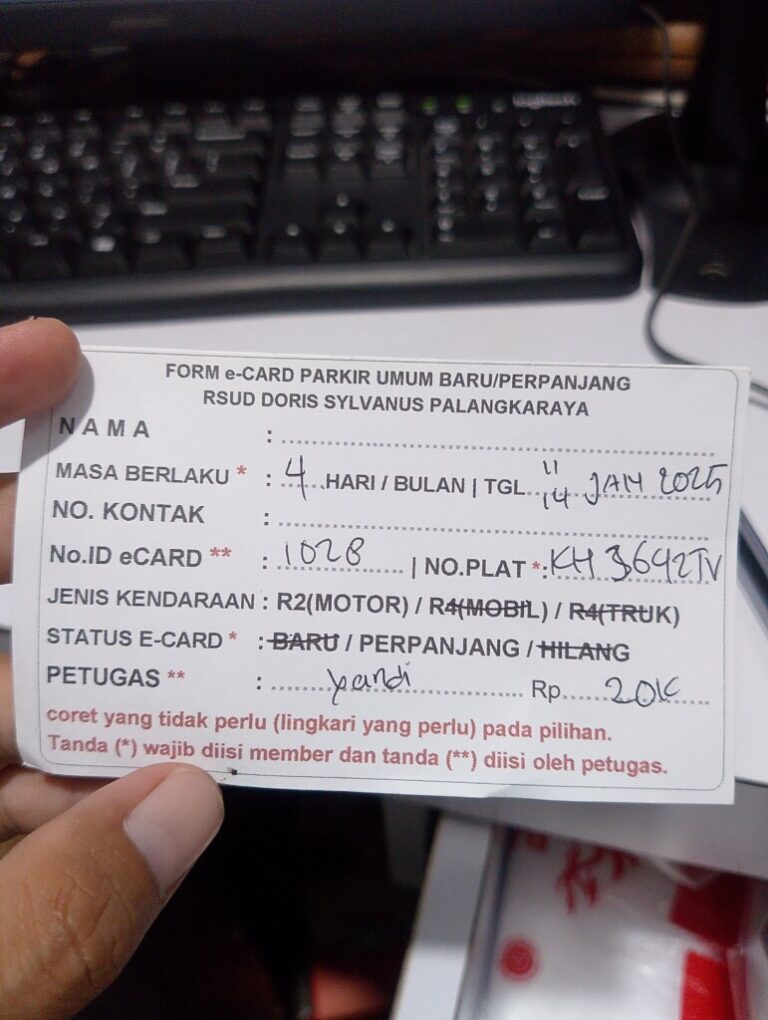 FORM e-CARD PARKIR UMUM BARU/PERPANJANG
RSUD DORIS SYLVANUS PALANGKARAYA
NAMA :
MASA BERLAKU * : 4 HARI / BULAN | TGL 11 14 JAN 2025
NO. KONTAK :
No.ID eCARD ** : 1028 | NO.PLAT *: KH 3642TV
JENIS KENDARAAN : R2(MOTOR) / R4(MOBIL) / R4(TRUK)
STATUS E-CARD * : BARU / PERPANJANG / HILANG
PETUGAS ** : yandi Rp 20K
coret yang tidak perlu (lingkari yang perlu) pada pilihan.
Tanda (*) wajib diisi member dan tanda (**) diisi oleh petugas.